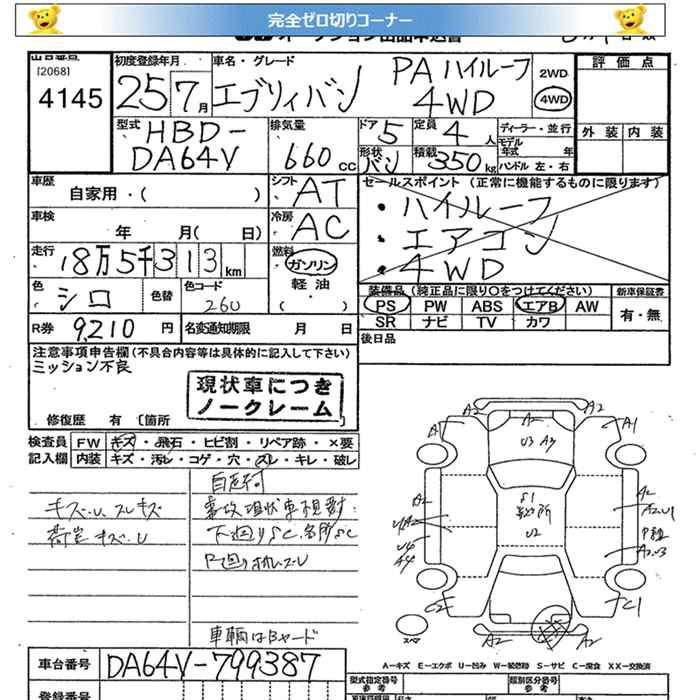 完全ゼロ切りコーナー
出品番号
[2068]
4145
初度登録年月
25 7月
車名・グレード
エブリィバン
PA ハイルーフ
4WD
2WD
4WD
評価点
外装 内装
型式
HBD-
DA64V
排気量
660 cc
ドア 5
形状 バン
定員 4 人
積載 350 kg
ディーラー・並行
モデル年式 年
ハンドル 左・右
車歴
自家用・( )
シフト AT
セールスポイント (正常に機能するものに限ります)
・ハイルーフ
・エアコン
・4WD
車検 年 月( 日)
冷房 AC
走行 18万5千313km
燃料
ガソリン
軽油
・( )
色 シロ
色替
色コード
26U
装備品 (純正品に限り○をつけてください)
新車保証書
PS PW ABS エアB AW
SR ナビ TV カワ
有・無
R券 9,210 円
名変通知期限 月 日
後日品
注意事項申告欄(不具合内容等は具体的に記入して下さい)
ミッション不良
現状車につき
ノークレーム
修復歴 有 〔箇所 〕
検査員
記入欄
FW キズ・飛石・ヒビ割・リペア跡・×要
内装 キズ・汚レ・コゲ・穴・スレ・キレ・破レ
自走不可
キズ・U スレキズ
荷台キズ・U
下廻りSC
車輌はBヤード
A1
A2
A2
A1
A2
U3 A3
S1
U2
A2
C2
C1
A2
A2
スペア
車台番号 DA64V-799387
A-キズ E-エクボ U-凹み W-補修跡 S-サビ C-腐食 XX-交換済
型式指定番号
参考
類別区分番号
参考
登録番号